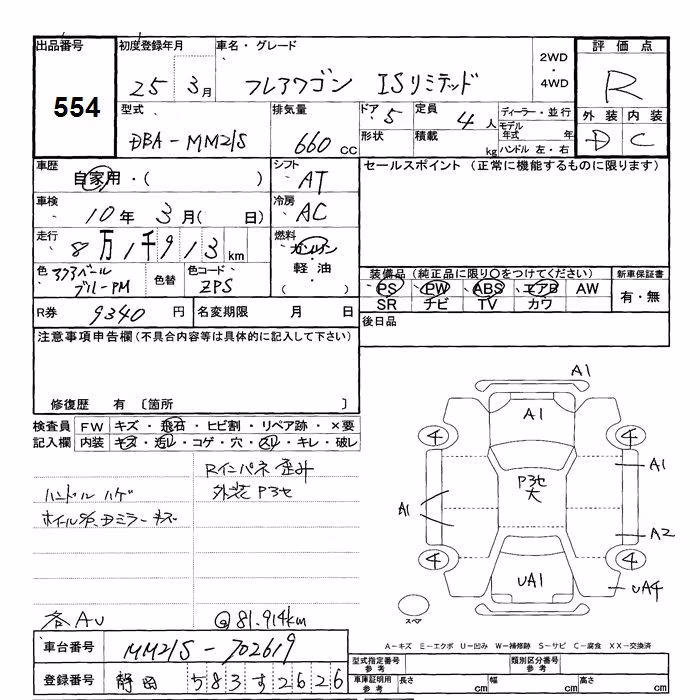 出品番号
554
初度登録年月
25年 3月
車名・グレード
フレアワゴン ISリミテッド
2WD
・
4WD
評価点
R
外装 内装
D C
型式
DBA-MM21S
排気量
660 cc
ドア 5
定員 4人
ディーラー・並行
形状
積載 kg
モデル年式 年
ハンドル 左・右
車歴
自家用・( )
シフト
AT
セールスポイント (正常に機能するものに限ります)
車検
10年 3月( 日)
冷房
AC
走行
8万1千913km
燃料
ガソリン
軽油
( )
色
アクアベール
ブルーPM
色替
色コード
ZPS
装備品 (純正品に限り○をつけてください)
PS PW ABS エアB AW
SR ナビ TV カワ
新車保証書
有・無
R券 9340円
名変期限 月 日
後日品
注意事項申告欄(不具合内容等は具体的に記入して下さい)
修復歴 有 〔箇所 〕
検査員
記入欄
FW キズ・飛石・ヒビ割・リペア跡・×要
内装 キズ・汚レ・コゲ・穴・スレ・キレ・破レ
Rインパネ歪み
ハンドルハゲ
外装P3セ
各AU
@81.914km
A1
A1
4 4
A1
P3セ
大
A1
A2
4 4
UA1
UA4
スペア
A-キズ E-エクボ U-凹み W-補修跡 S-サビ C-腐食 XX-交換済
車台番号
MM21S-702619
登録番号
静岡 583す2626
型式指定番号
参考
類別区分番号
参考
車庫証明用
参考
長さ cm
幅 cm
高さ cm